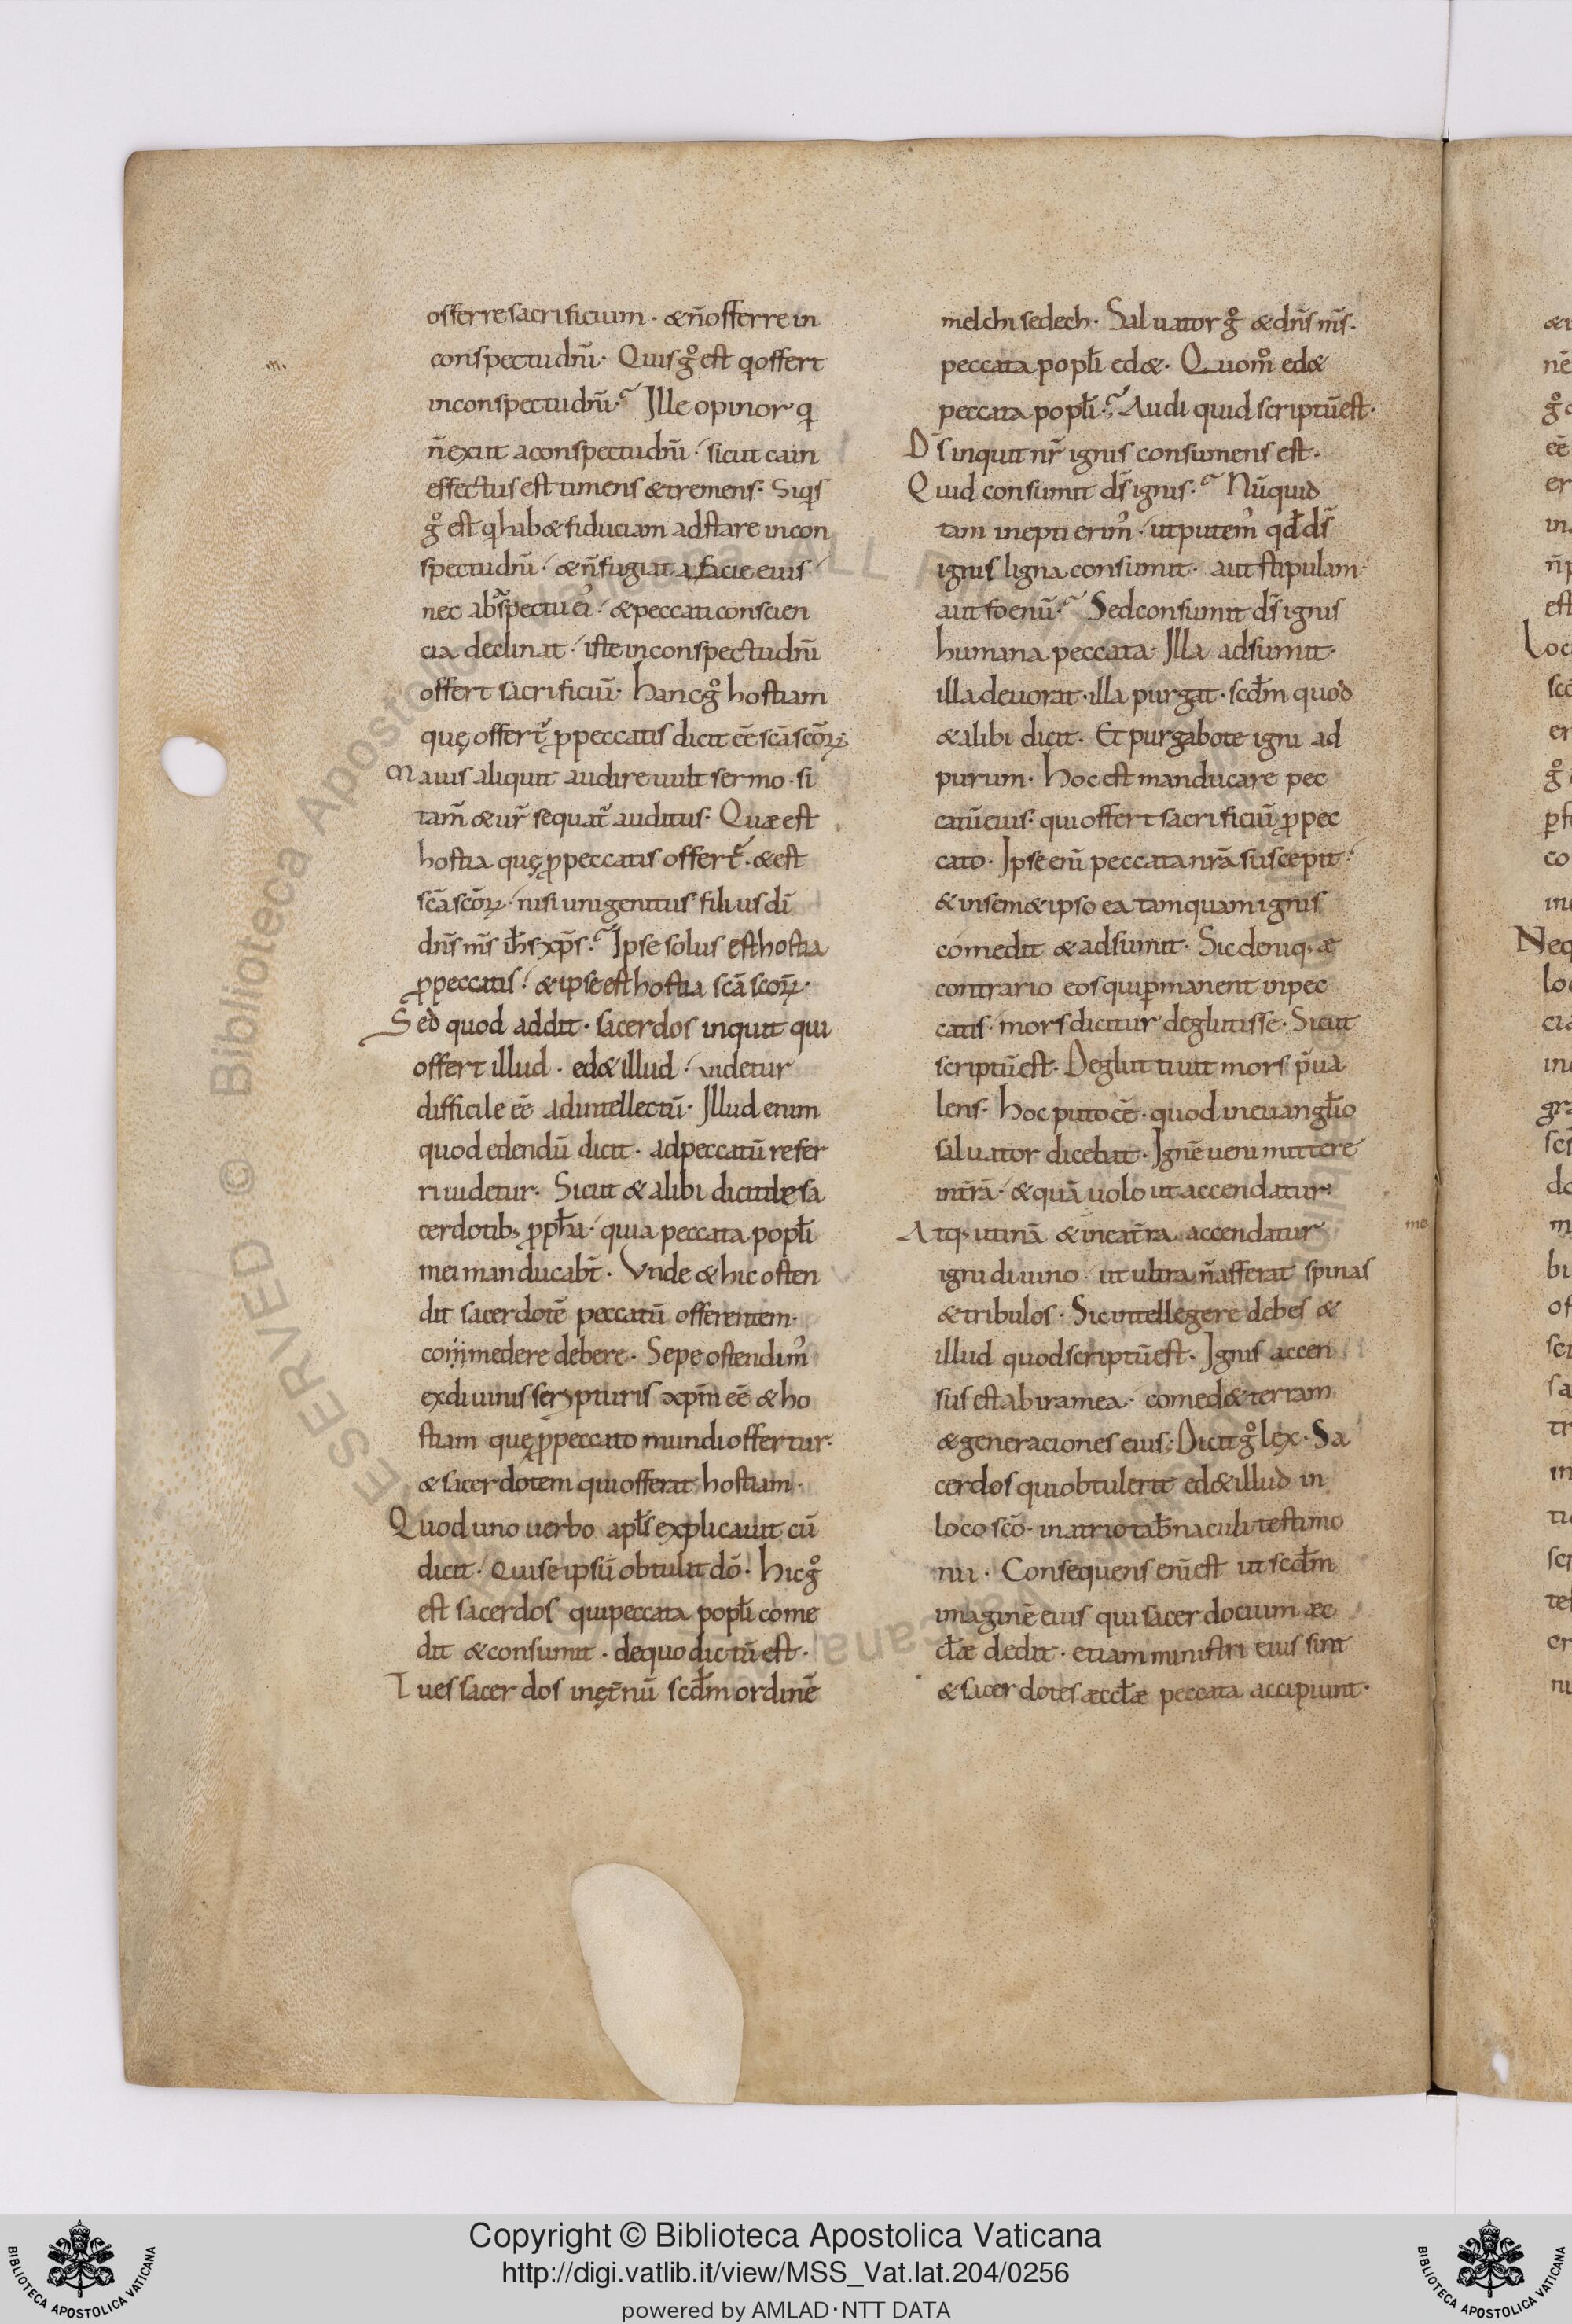 offerre sacrificium · & n̄ offerre in
conspectu dn̄i · Quis gͦ est q offert
in conspectu dn̄i · Ille opinor q
n̄ exiit a conspectu dn̄i · sicut cain
effectus est timens & tremens · Siqs
gͦ est q hab& fiduciam adstare in con
spectu dn̄i · & n̄ fugiat a facie eius ·
nec ab
& peccati conscien
cia declinat · iste in conspectu dn̄i
offert sacrificiū · hanc gͦ hostiam
quę offert̄ p peccatis dicit eē scā scōꝝ ·
Mauis aliquit audire uult sermo · si
tam̄ & ur̄ sequat̄ auditus · Quae est
hostia quę p peccatis offert̄ · & est
scā scōꝝ · nisi unigenitus filius dī
dn̄s nr̄s ih̄s xp̄s · Ipse solus est hostia
p peccatis · & ipse est hostia scā scōꝝ ·
Sed quod addit · sacerdos inquit qui
offert illud · ed& illud · uidetur
difficile eē ad intellectū · Illud enim
quod edendū dicit · ad peccatū refer
ri uidetur · Sicut & alibi dicit de sa
cerdotib; p pph̄a · quia peccata popl̄i
mei manducabt̄ · Vnde & hic osten
dit sacerdotē peccatū offerentem ·
commedere debere · Sepe ostendim᾽
ex diuinis scripturis xp̄m eē & ho
stiam quę p peccato mundi offertur ·
& sacerdotem qui offerat hostiam ·
Quod uno uerbo apl̄s explicauit cū
dicit · qui se ipsū obtulit dō · hic gͦ
est sacerdos qui peccata popl̄i come
dit & consumit · de quo dictū est ·
Tu es sacerdos in ęt̄nū scd̄m ordinē
melchisedech · Saluator gͦ & dn̄s nr̄s ·
peccata popl̄i ed& · Quom̊ ed&
peccata popl̄i · Audi quid scriptū est ·
Ds̄ inquit nr̄ ignis consumens est ·
Quid consumit ds̄ ignis · Nūquid
tam inepti erim᾽ · ut putem᾽ qd̄ ds̄
ignis ligna consumit · aut stipulam
aut foenū · Sed consumit ds̄ ignis
humana peccata · Illa adsumit ·
illa deuorat · illa purgat · scd̄m quod
& alibi dicit · Et purgabo te igni ad
purum · hoc est manducare pec
catū eius · qui offert sacrificiū p pec
cato · Ipse eni peccata nr̄a suscepit ·
& in sem& ipso ea tamquam ignis
comedit & adsumit · Sic deniq; æ
contrario eos qui pmanent in pec
catis · mors dicitur deglutisse · Sicut
scriptū est · Deglutiuit mors p̄ua
lens · hoc puto eē · quod in euangl̄io
saluator dicebat · Ignē ueni mittere
in t̄rā · & quā uolo ut accendatur ·
Atq; utinā & in ea t̄ra accendatur
igni diuino · ut ultra n̄ afferat spinas
& tribulos · Sic intellegere debes &
illud quod scriptū est · Ignis accen
sus est ab ira mea · comed& terram
& generaciones eius · Dicit gͦ lex · Sa
cerdos qui obtulerit ed& illud in
loco scō · in atrio tab̄naculi testimo
nii · Consequens eni est ut scd̄m
imaginē eius qui sacerdocium æc
cl̄æ dedit · etiam ministri eius sint
& sacerdotes æccl̄æ peccata accipiunt ·
© Biblioteca Apostolica Vaticana. ALL RIGHTS RESERVED
Copyright © Biblioteca Apostolica Vaticana
http://digi.vatlib.it/view/MSS_Vat.lat.204/0256
powered by AMLAD·NTT DATA
BIBLIOTECA APOSTOLICA VATICANA
BIBLIOTECA APOSTOLICA VATICANA